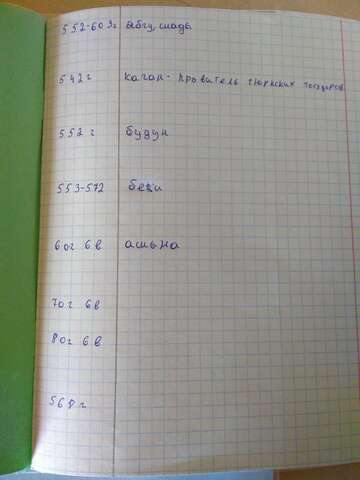 552-603г ябгу, шады
542г каган - правитель тюркских государ
552 г будун
553-572 беки
60г 6в ашына
70г 6в
80г 6в
568 г